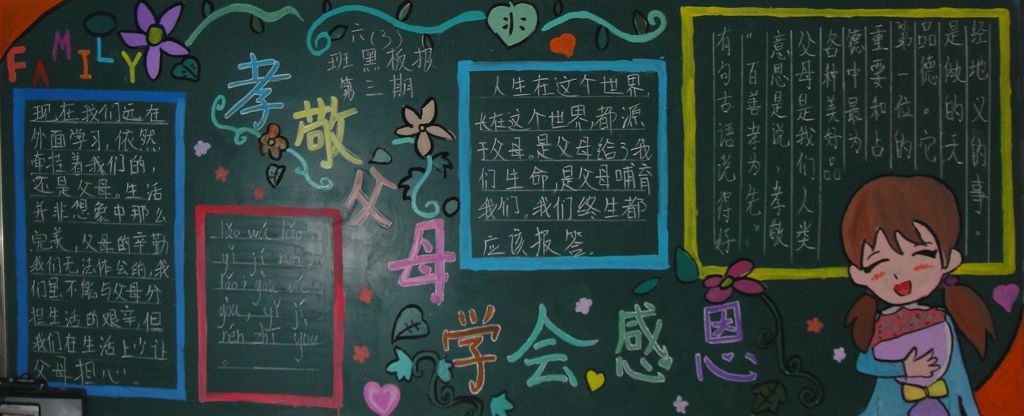 FAMILY
六(3)
班黑板报
第三期
孝敬父母
学会感恩
现在我们远在
外面学习,依然
牵挂着我们的,
还是父母。生活
并非想象中那么
完美,父母的辛勤
我们无法体会的,我
们虽不能与父母分
担生活的艰辛,但
我们在生活上少让
父母担心。
lǎo wú lǎo,
yǐ jí rén zhī
lǎo, yòu wú
yòu, yǐ jí
rén zhī yòu
。
人生在这个世界,
长在这个世界,都源
于父母。是父母给了我
们生命,是父母哺育
我们。我们终生都
应该报答。
有句古语说得好
“百善孝为先”
意思是说,孝敬
父母是我们人类
各种美好品
德中最为
重要和占
第一位的
品德。它
是做的天
经地义的事。